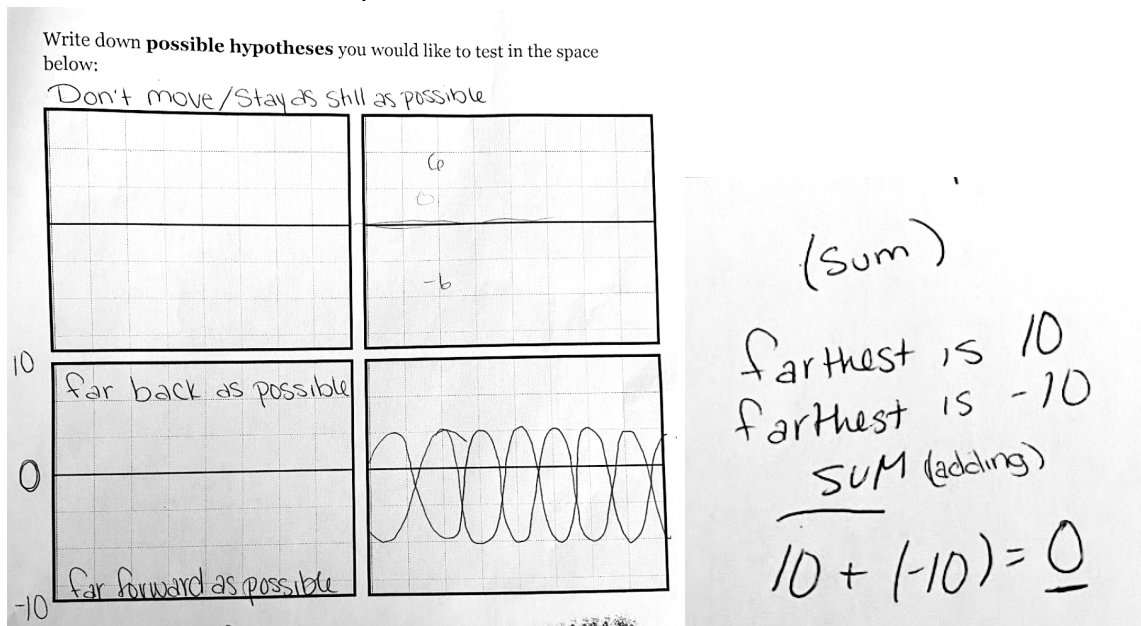 Write down possible hypotheses you would like to test in the space
below:
Don't move/Stay as still as possible
6
0
-6
10
far back as possible
0
far forward as possible
-10
(sum)
farthest is 10
farthest is -10
SUM (adding)
10 + (-10) = 0